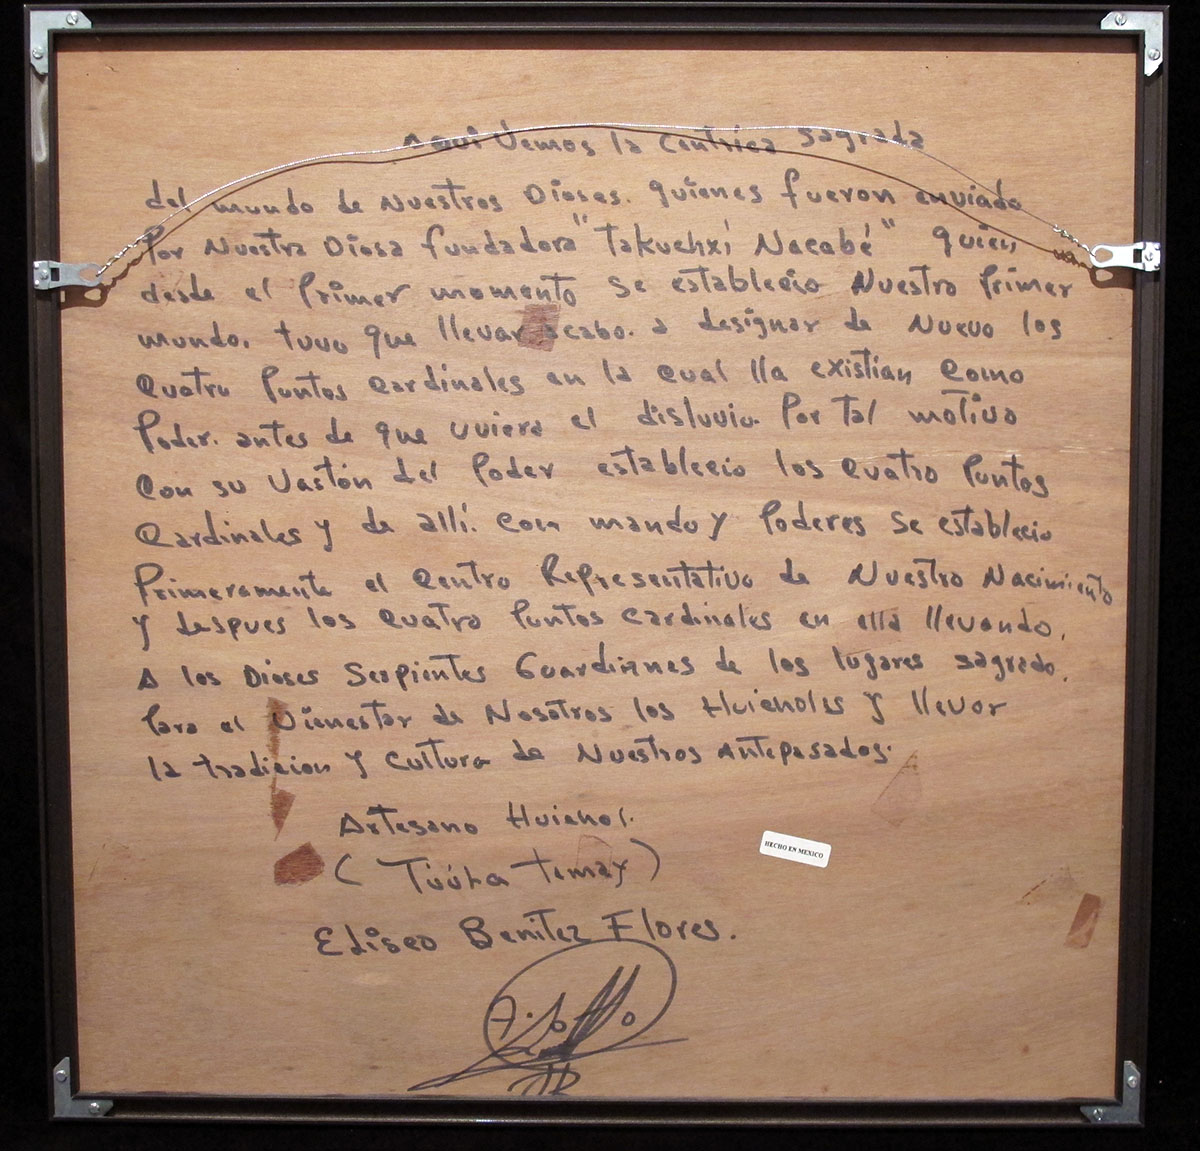 Aqui Vemos la Centrica sagrada
del mundo de Nuestros Dioses. quienes fueron enviado
Por Nuestra Diosa fundadora "Takuchxi Nacabé" quien
desde el Primer momento se establecio Nuestro Primer
mundo. tuvo que llevar acabo. a designar de Nuevo los
Quatro Puntos Cardinales en la Qual lla existian Como
Poder. antes de que uviera el disluvio. Por tal motivo
Con su Vastón del Poder establecio los Quatro Puntos
Cardinales y de alli. Con mando y Poderes se establecio
Primeramente el Centro Representativo de Nuestro Nacimiento
y despues los Quatro Puntos Cardinales en ella llevando.
A los Dioses Serpientes Guardianes de los lugares sagrado.
Para el Vienestar de Nosotros los Huicholes y llevar
la tradicion y Cultura de Nuestros Antepasados.
Artesano Huichol.
( Túúka Temay )
Eliseo Benitez Flores.
HECHO EN MEXICO